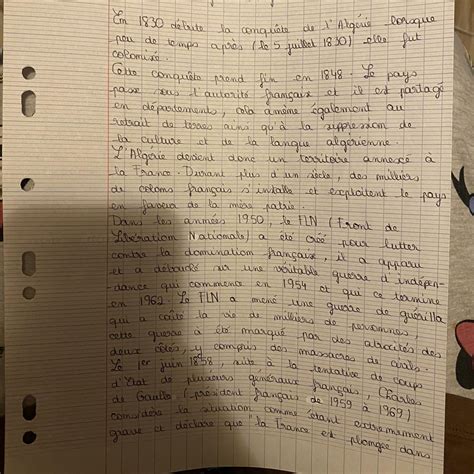 En 1830 débute la conquête de l'Algérie lorsque
peu de temps après (le 5 juillet 1830) elle fut
colonisé.
Cette conquête prend fin en 1848. Le pays
passe sous l'autorité français et il est partagé
en départements, cela amène également au
retrait de terres ainsi qu'à la suppression de
la culture et de la langue algérienne.
L'Algérie devient donc un territoire annexé à
la France. Durant plus d'un siècle, des milliers
de colons français s'installe et exploitent le pays
en faveur de la mère patrie.
Dans les années 1950, le FLN (Front de
Libération Nationale) a été créé pour lutter
contre la domination français, il a apparu
et a débouché sur une véritable guerre d'indépen-
dance qui commence en 1954 et qui ce termine
en 1962. Le FLN a mené une guerre de guérilla
qui a coûté la vie de milliers de personnes,
cette guerre a été marqué par des atrocités des
deux côtés, y compris des massacres de civils.
Le 1er juin 1858, suite à la tentative de coups
d'État de plusieurs généraux français, Charles
de Gaulle (président français de 1959 à 1969)
considère la situation comme étant extrêmement
grave et déclare que "la France est plongée dans